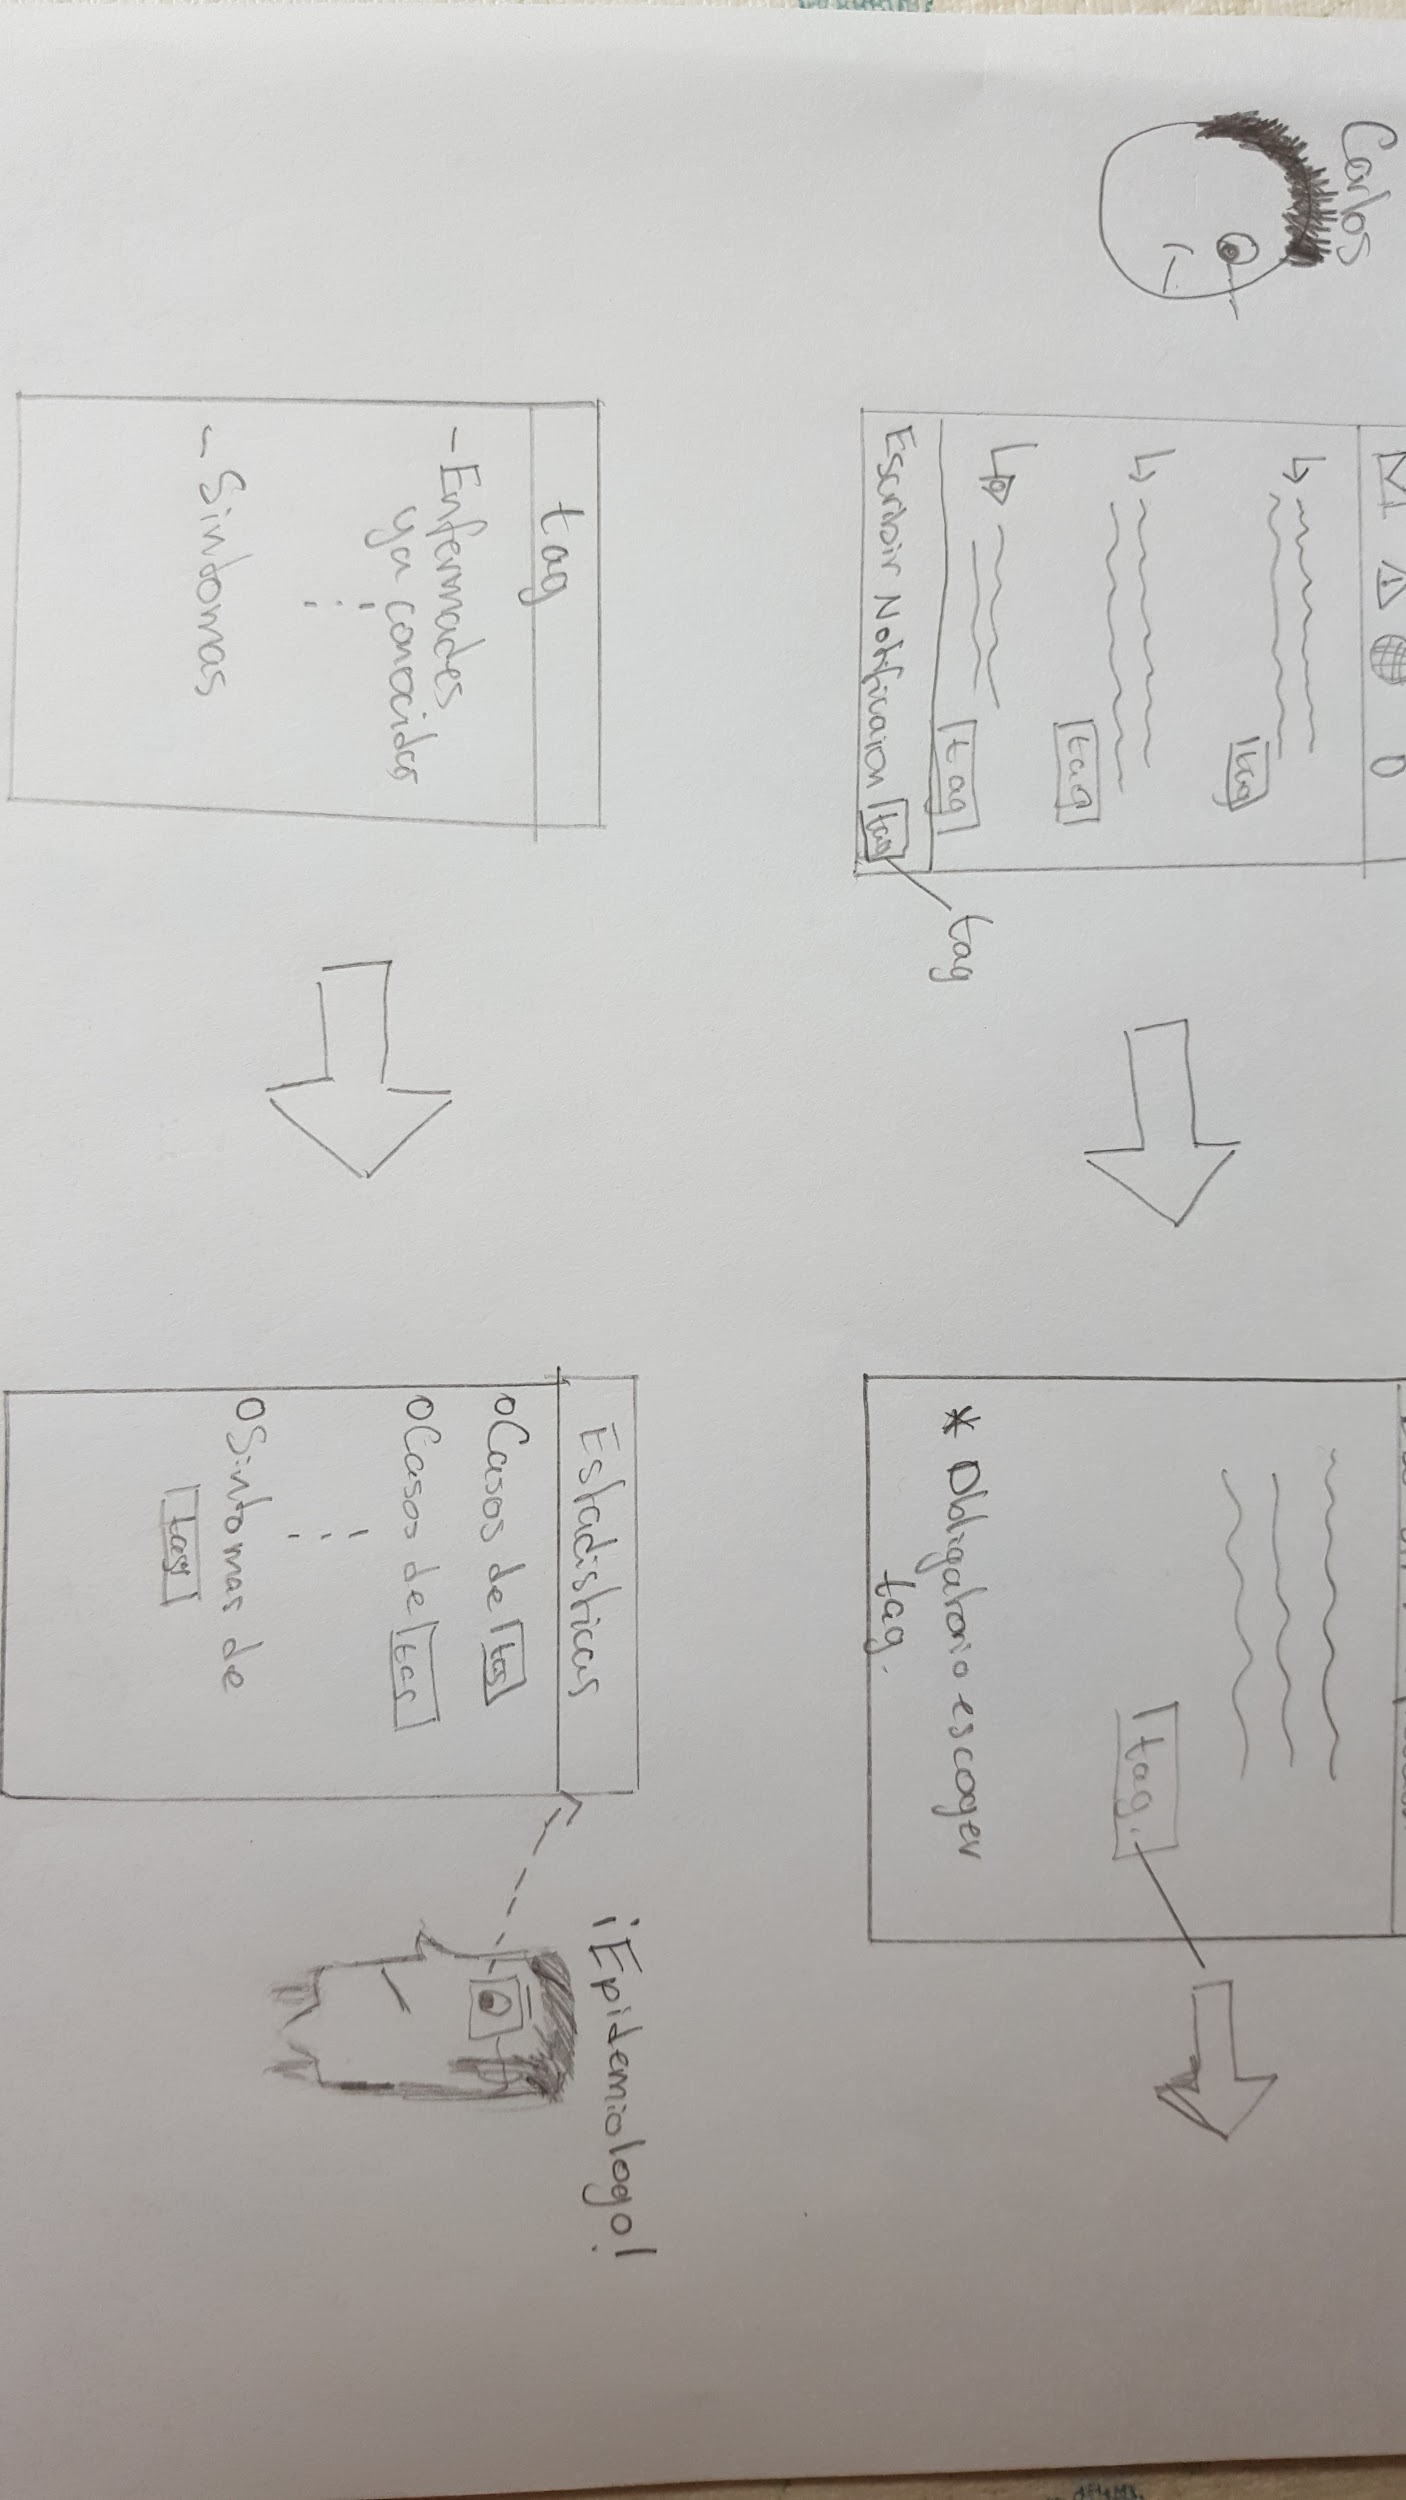 Carlos
tag
tag
tag
Escribir Notificaion tag
tag
tag.
* Obligatorio escoger
tag.
tag
- Enfermades
ya conocidas
- Sintomas
Estadisticas
O Casos de tag
O Casos de tag
O Sintomas de
tag
¡Epidemiologo!